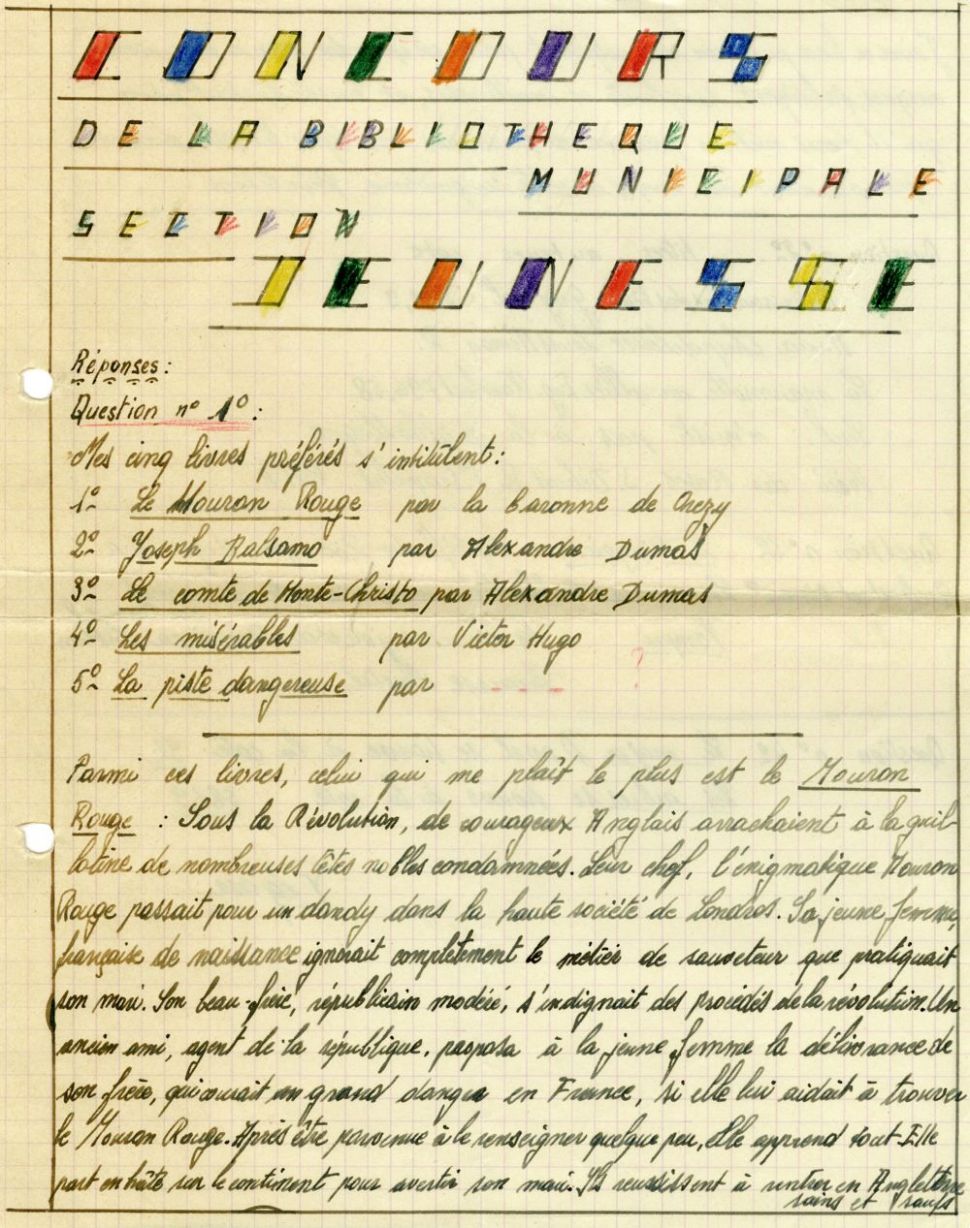 CONCOURS
DE LA BIBLIOTHEQUE
MUNICIPALE
SECTION
JEUNESSE
Réponses :
Question nº 1º :
Mes cinq livres préférés s'intitulent :
1º Le Mouron Rouge par la baronne de Orczy
2º Joseph Balsamo par Alexandre Dumas
3º Le comte de Monte-Christo par Alexandre Dumas
4º Les misérables par Victor Hugo
5º La piste dangereuse par — — — ?
Parmi ces livres, celui qui me plaît le plus est le Mouron
Rouge : Sous la Révolution, de courageux Anglais arrachaient à la guil-
lotine de nombreuses têtes nobles condamnées. Leur chef, l'énigmatique Mouron
Rouge passait pour un dandy dans la haute société de Londres. Sa jeune femme,
française de naissance ignorait complètement le métier de sauveteur que pratiquait
son mari. Son beau-frère, républicain modéré, s'indignait des procédés de la révolution. Un
ancien ami, agent de la république, proposa à la jeune femme la délivrance de
son frère, qui courait un grand danger en France, si elle lui aidait à trouver
le Mouron Rouge. Après être parvenue à le renseigner quelque peu, elle apprend tout. Elle
part en hâte sur le continent pour avertir son mari. Ils réussissent à rentrer en Angleterre
sains et saufs